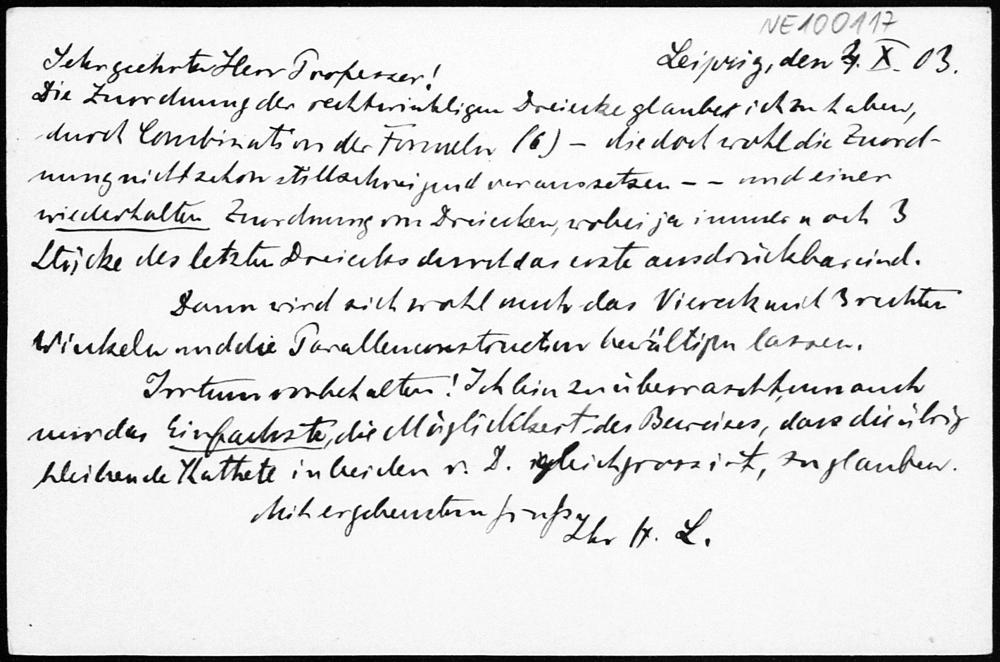 NE100117
Leipzig, den 4. X. 03.
Sehr geehrter Herr Professor!
Die Zuordnung der rechtwinkligen Dreiecke glaube ich zu haben,
durch Combination der Formeln (6) – die doch wohl die Zuord-
nung nicht schon stillschweigend voraussetzen – – und einer
wiederholten Zuordnung von Dreiecken, wobei ja immer noch 3
Stücke des letzten Dreiecks durch das erste ausdrückbar sind.
Dann wird sich wohl auch das Viereck mit 3 rechten
Winkeln und die Parallelenconstruction bewältigen lassen.
Irrtum vorbehalten! Ich bin zu überrascht, um auch
nur das Einfachste, die Möglichkeit des Beweises, dass die übrig
bleibende Kathete in beiden r. D. gleich gross ist, zu glauben.
Mit ergebenstem Gruss
Ihr H. L.